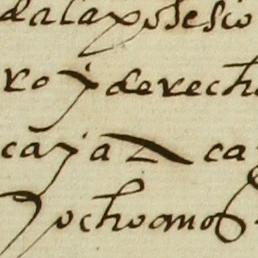 da la posesio
ro y derech
caja z ca
y ochoanos